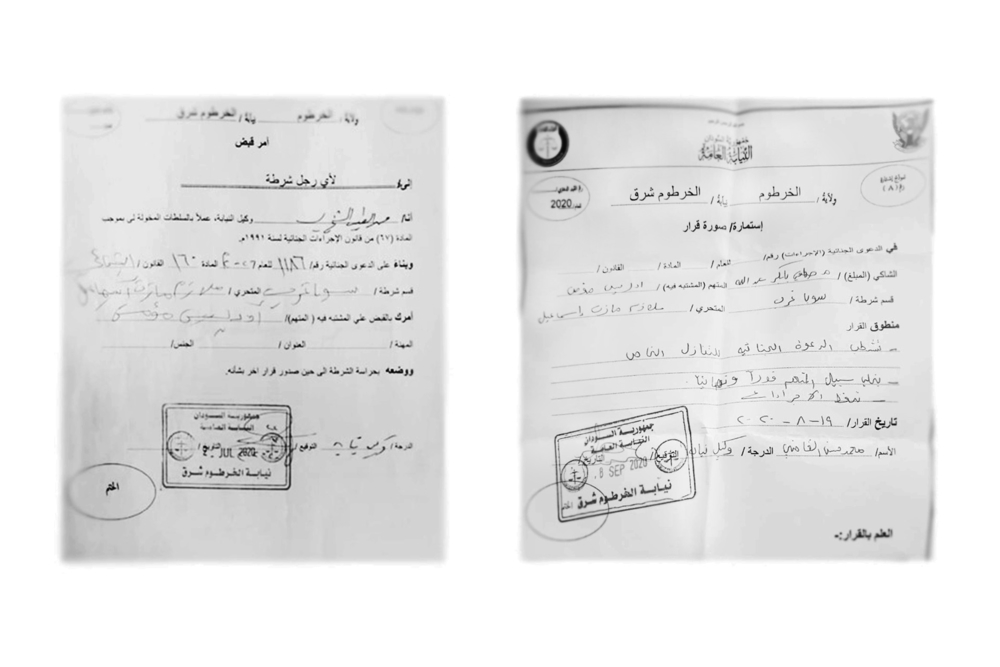 ولاية/ الخرطوم نيابة/ الخرطوم شرق
أمر قبض
إلى/ لأي رجل شرطة
أنا/ وكيل النيابة، عملاً بالسلطات المخولة لي بموجب
المادة (٦٧) من قانون الإجراءات الجنائية لسنة ١٩٩١م.
وبناءً على الدعوى الجنائية رقم/ ١١٨٦ للعام المادة ١٦٠ القانون/
قسم شرطة/ سوبا غرب المتحري/ ملازم مازن إسماعيل
أمرك بالقبض على المشتبه فيه (المتهم)/
المهنة/ العنوان/ الجنس/
ووضعه بحراسة الشرطة الى حين صدور قرار اخر بشأنه.
الدرجة/ وكيل نيابة التوقيع/ التاريخ/
جمهورية السودان
النيابة العامة
JUL 2020
نيابة الخرطوم شرق
الختم
جمهورية السودان
النيابة العامة
2020
ولاية/ الخرطوم نيابة/ الخرطوم شرق
إستمارة/ صورة قرار
في الدعوى الجنائية (الإجراءات) رقم/ للعام/ المادة/ القانون/
الشاكي (المبلغ)/ المتهم (المشتبه فيه)/
قسم شرطة/ سوبا غرب المتحري/ ملازم مازن إسماعيل
منطوق القرار
- تشطب الدعوة الجنائية للتنازل الخاص
- يخلى سبيل المتهم فوراً ونهائياً.
- تحفظ الإجراءات
تاريخ القرار/ ١٩-٨-٢٠٢٠
الأسم/ الدرجة/ وكيل نيابة التوقيع/
جمهورية السودان
النيابة العامة
التاريخ/
SEP 2020
نيابة الخرطوم شرق
الختم
العلم بالقرار:-